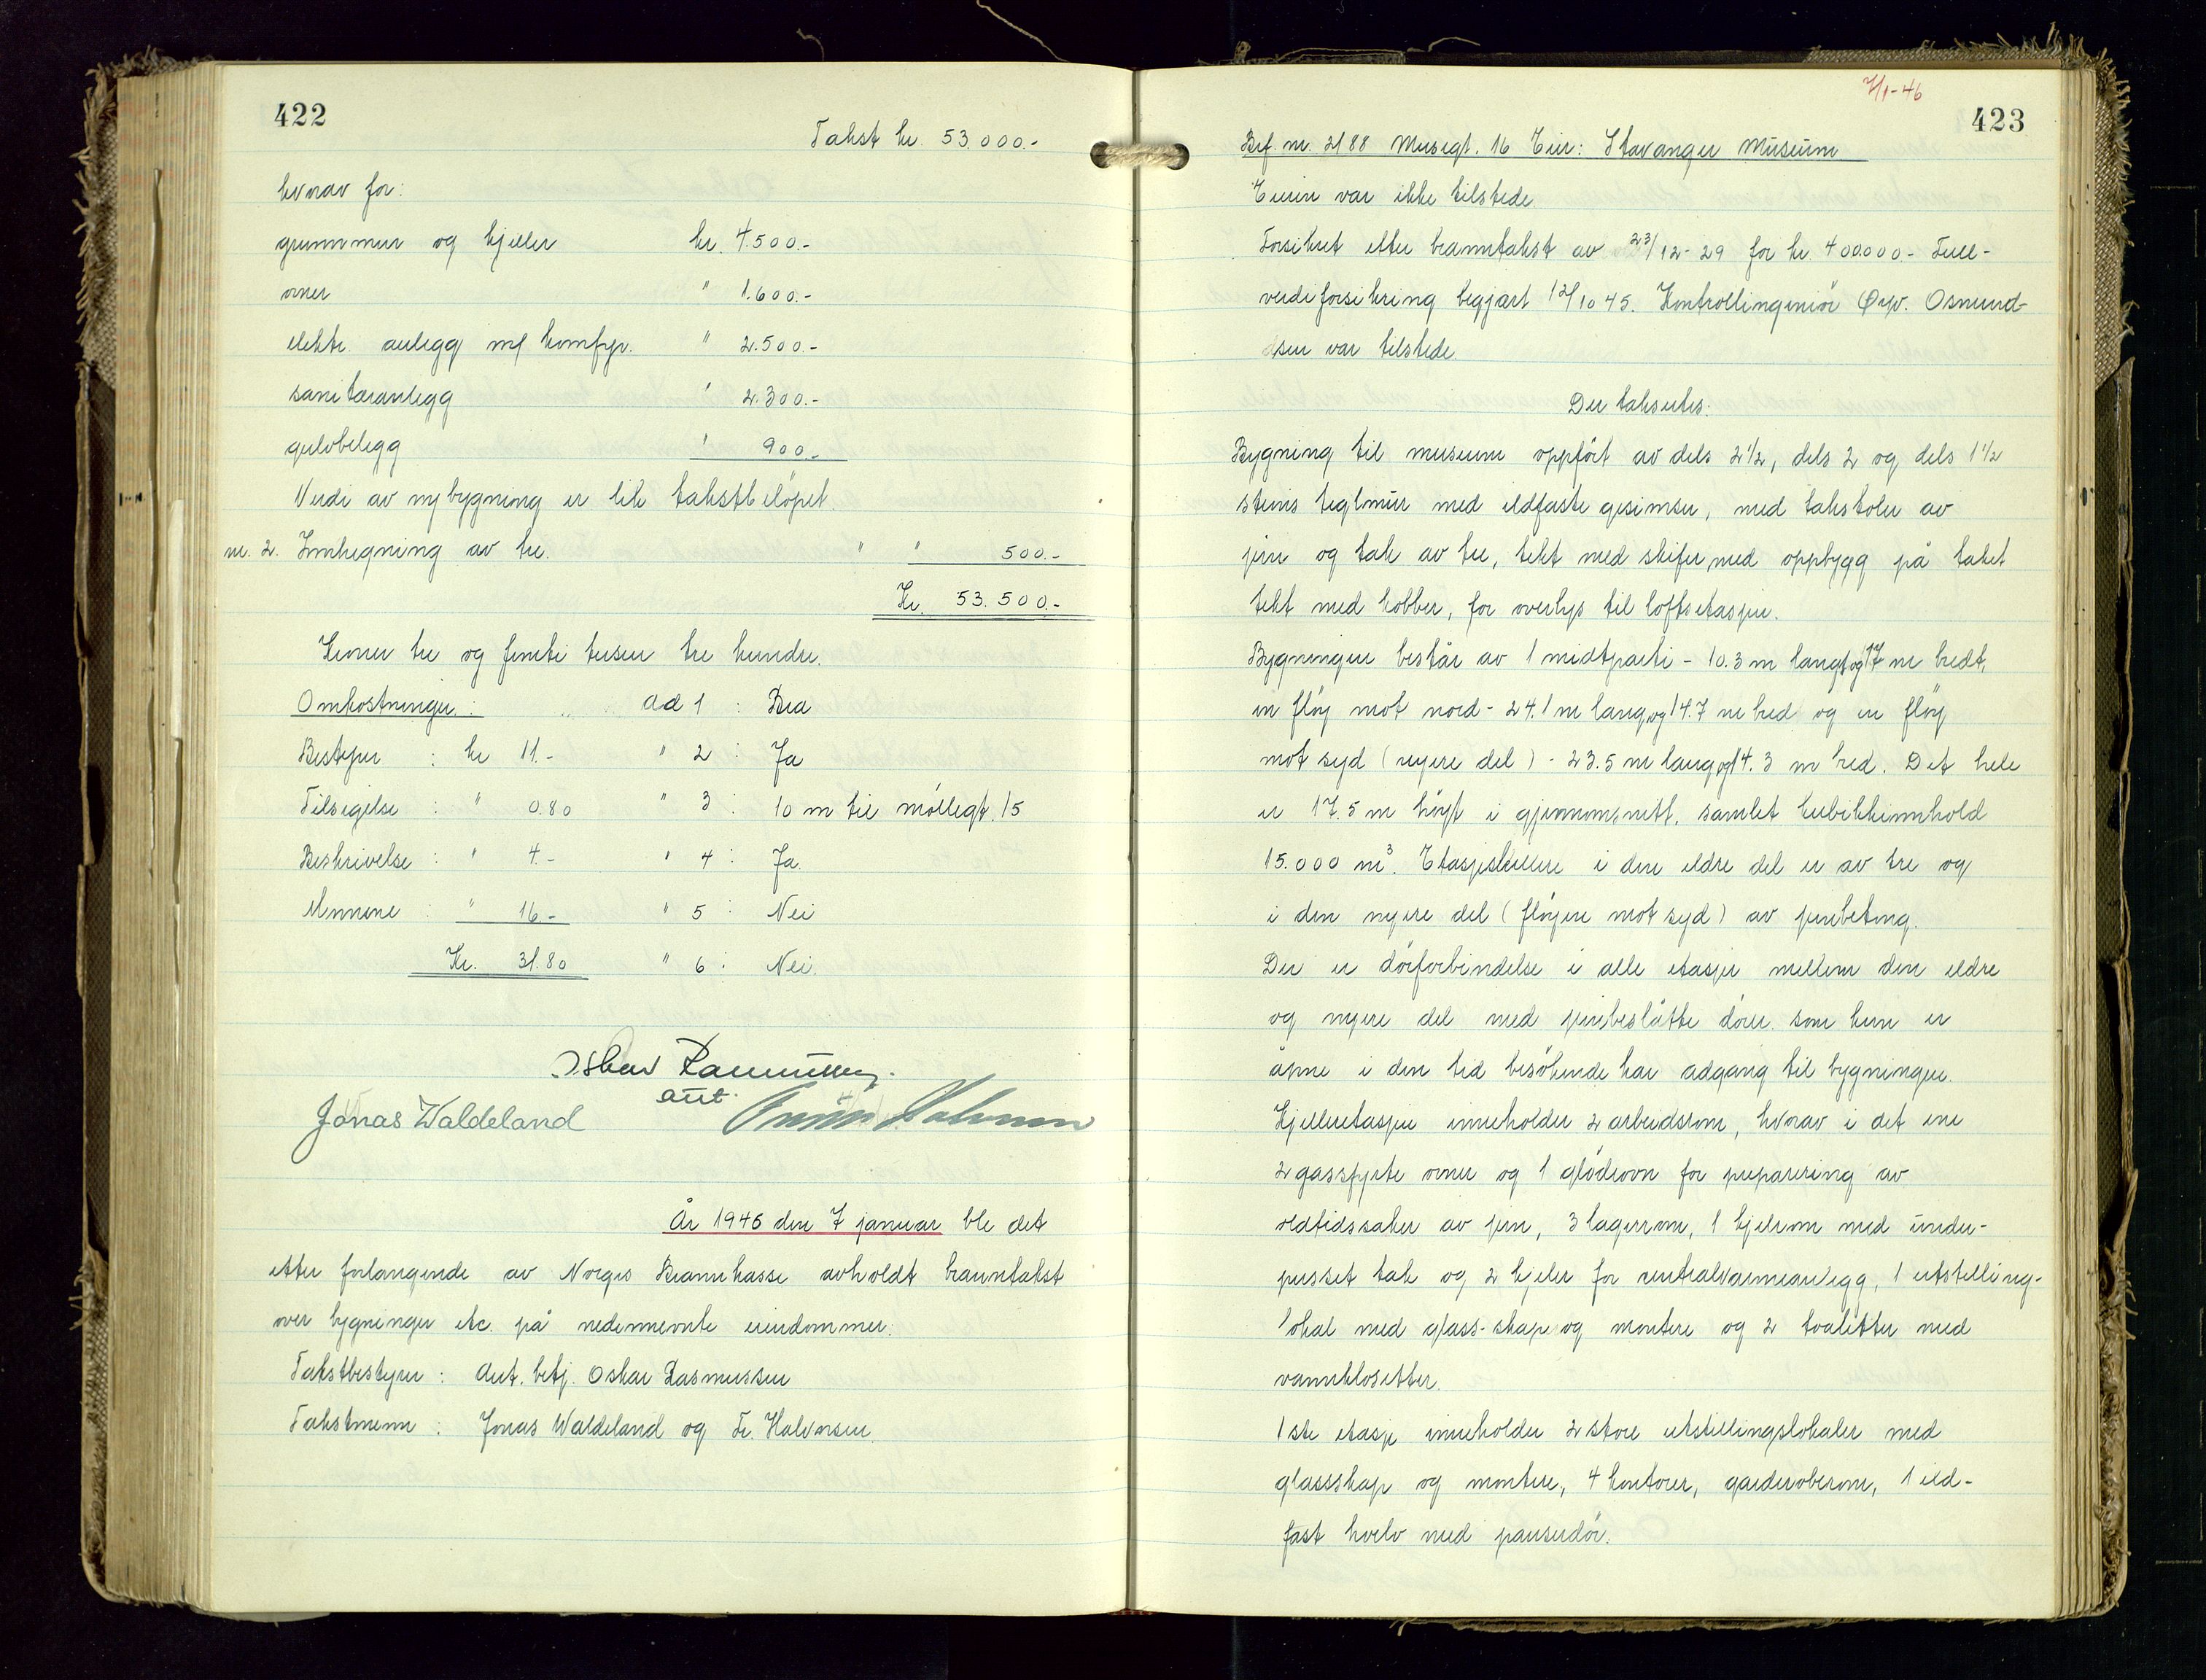 422
Takst kr. 53.000.-
hvorav for:
grunnmur og kjeller kr. 4.500.-
ovner " 1.600.-
elektr. anlegg m/ komfyr. " 2.500.-
sanitæranlegg " 2.300.-
gulvbelegg " 900.-
Verdi av nybygning er lik takstbeløpet.
nr. 2. Innhegning av tre. " " 500.-
Kr. 53.500.-
Kroner tre og femti tusen tre hundre.
Omkostninger: ad 1 : Bra
Bestyrer : kr 11.- " 2 : Ja
Tilsigelse : " 0.80 " 3 : 10 m til møllegt. 15
Beskrivelse : " 4.- " 4 : Ja.
Mennene : " 16.- " 5 : Nei
Kr. 31.80 " 6 : Nei.
Oskar Rasmussen.
aut.
Jonas Waldeland Halvorsen
År 1946 den 7 januar ble det
etter forlangende av Norges Brannkasse avholdt branntakst
over bygninger etc. på nedennevnte eiendommer.
Takstbestyrer : Aut. betj. Oskar Rasmussen
Takstmenn : Jonas Waldeland og Fr. Halvorsen.
7/1-46
423
Brf. nr. 2188 Musegt. 16 Eier: Stavanger Museum
Eieren var ikke tilstede
Forsikret etter branntakst av 23/12-29 for kr. 400.000.- Full-
verdiforsikring begjært 12/10 45. Kontrollingeniør Ørp. Osmund-
sen var tilstede.
Der takseres:
Bygning til museum oppført av dels 2½, dels 2 og dels 1½
steins teglmur med ildfaste gesimser, med takstoler av
jern og tak av tre, tekt med skifer, med oppbygg på taket
tekt med kobber, for overlys til loftsetasjen.
Bygningen består av 1 midtparti - 10.3 m langt og 17 m bredt,
en fløy mot nord - 24.1 m lang og 14.7 m bred og en fløy
mot syd (nyere del) - 23.5 m lang og 14.3 m bred. Det hele
er 17.5 m høyt i gjennomsnitt, samlet kubikkinnhold
15.000 m³. Etasjeskillere i den eldre del er av tre og
i den nyere del (fløyen mot syd) av jernbetong.
Der er dørforbindelse i alle etasjer mellem den eldre
og nyere del med jernbeslåtte dører som kun er
åpne i den tid besøkende har adgang til bygningen.
Kjelleretasjen inneholder 2 arbeidsrom, hvorav i det ene
2 gassfyrte ovner og 1 glødeovn for preparering av
oldtidssaker av jern, 3 lagerrom, 1 kjelrom med under-
pusset tak og 2 kjeler for centralvarmeanlegg, 1 utstilling-
lokal med glass-skap og montere og 2 toaletter med
vannklosetter.
1ste etasje inneholder 2 store utstillingslokaler med
glassskap og montere, 4 kontorer, garderoberom, 1 ild-
fast hvelv med panserdør.